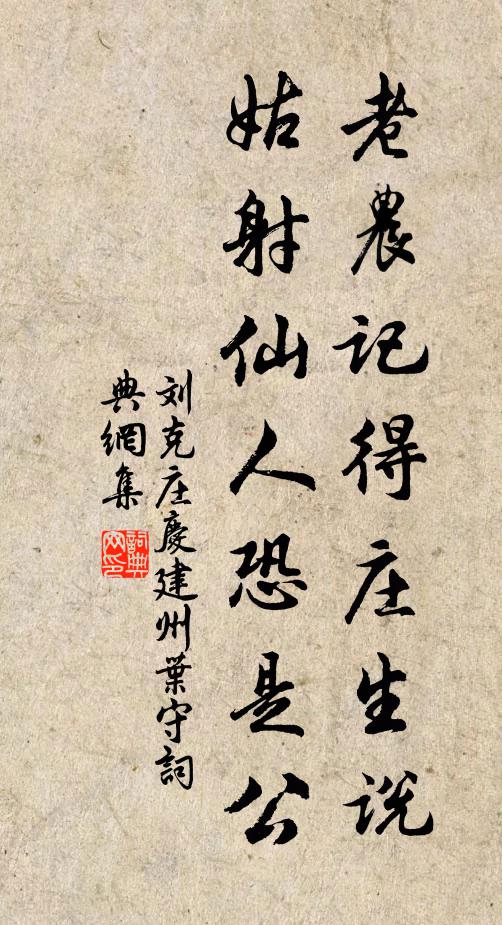 老農记得庄生说
姑射仙人恐是公
刘克庄慶建州葉守詞
典網集
詞典网印